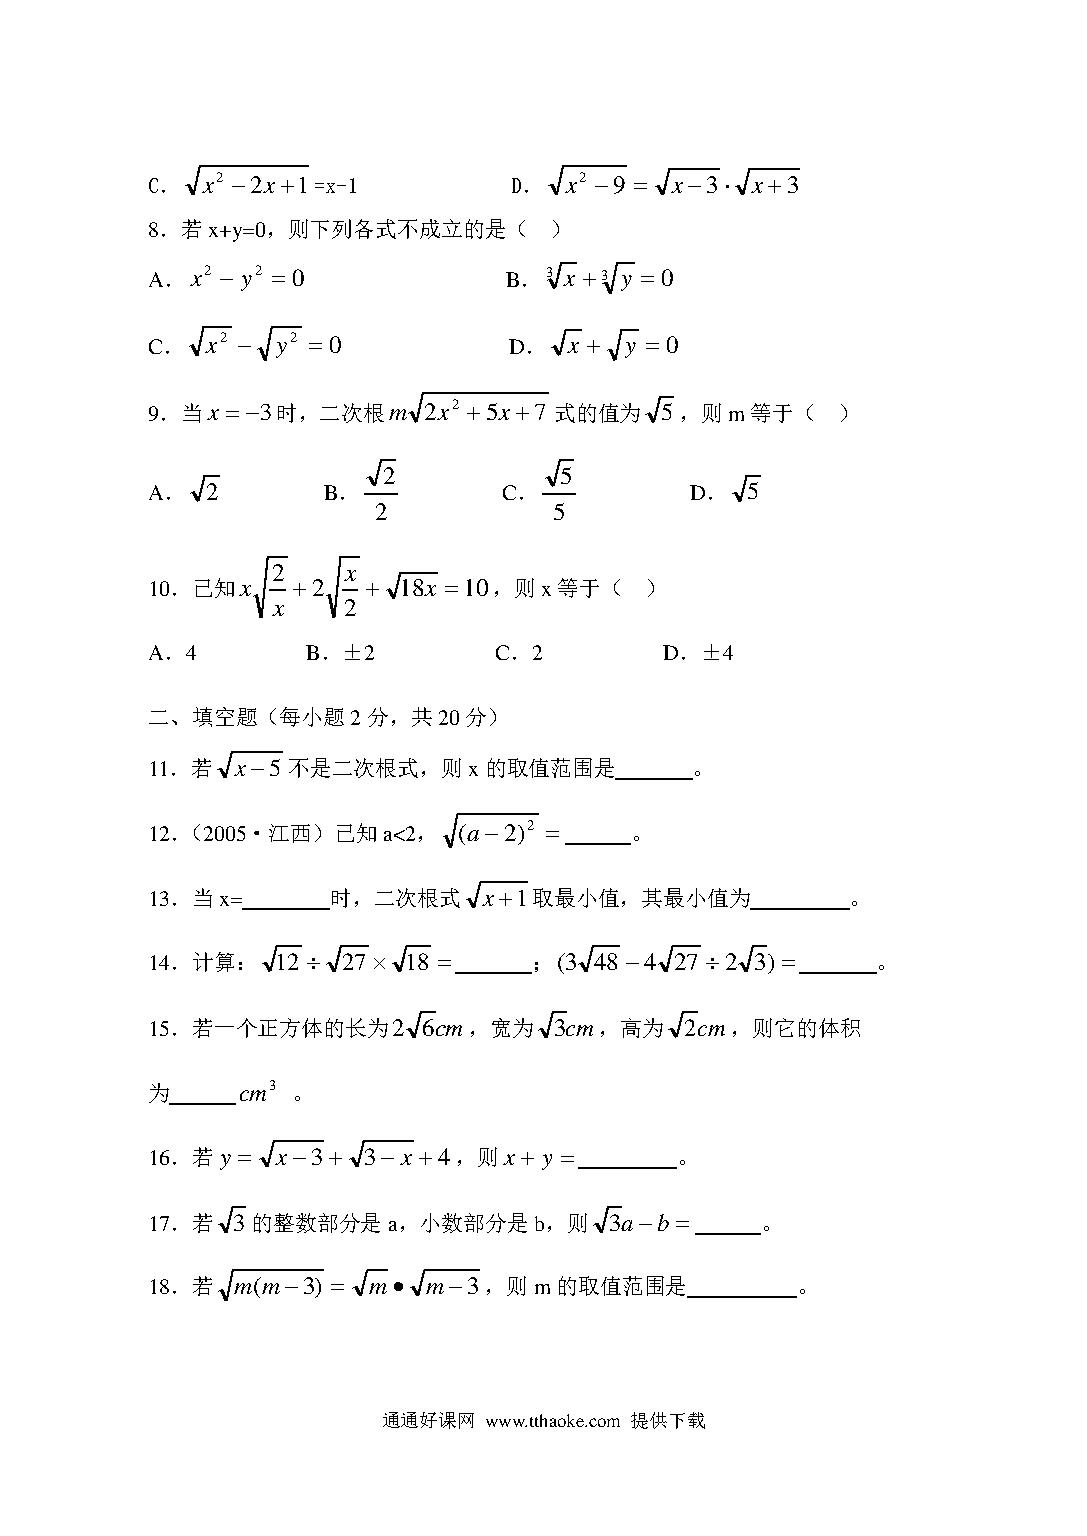 C．√(x²−2x+1)=x-1 D．√(x²−9)=√(x−3)·√(x+3)
8．若 x+y=0，则下列各式不成立的是（ ）
A．x²−y²=0 B．∛x+∛y=0
C．√(x²)−√(y²)=0 D．√x+√y=0
9．当x=−3时，二次根m√(2x²+5x+7)式的值为√5，则 m 等于（ ）
A．√2 B．√2/2 C．√5/5 D．√5
10．已知x√(2/x)+2√(x/2)+√(18x)=10，则 x 等于（ ）
A．4 B．±2 C．2 D．±4
二、填空题（每小题 2 分，共 20 分）
11．若√(x−5)不是二次根式，则 x 的取值范围是_______。
12．（2005·江西）已知 a<2，√((a−2)²)=______。
13．当 x=________时，二次根式√(x+1)取最小值，其最小值为_________。
14．计算：√12÷√27×√18=_______；(3√48−4√27÷2√3)=_______。
15．若一个正方体的长为2√6cm，宽为√3cm，高为√2cm，则它的体积
为______cm³ 。
16．若y=√(x−3)+√(3−x)+4，则x+y=_________。
17．若√3的整数部分是 a，小数部分是 b，则√3a−b=______。
18．若√(m(m−3))=√m•√(m−3)，则 m 的取值范围是__________。
通通好课网 www.tthaoke.com 提供下载